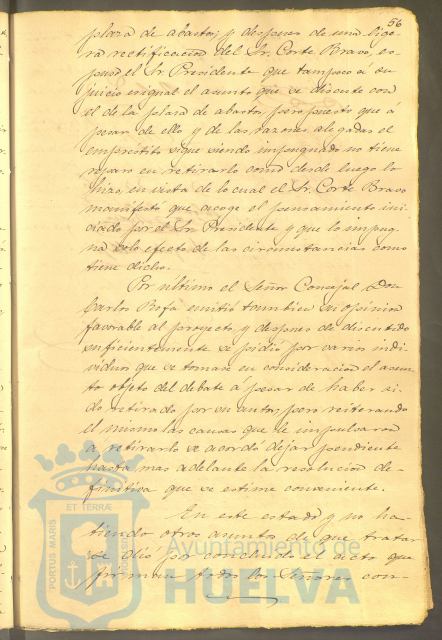 56
plaza de abastos; y despues de una lige-
ra rectificacion del Sr. Corte Bravo, es-
puso el Sr. Presidente que tampoco á su
juicio es igual el asunto que se discute con
el de la plaza de abastos, pero puesto que á
pesar de ello y de las razones alegadas el
empréstito sigue siendo impugnado no tiene
reparo en retirarlo como desde luego lo
hizo, en vista de lo cual el Sr. Corte Bravo
manifestó que acoge el pensamiento ini-
ciado por el Sr. Presidente y que lo impug-
na solo efecto de las circunstancias como
tiene dicho.
Por ultimo el Señor Concejal Don
Carlos Rofa emitió tambien su opinion
favorable al proyecto, y despues de discutido
suficientemente se pidió por varios indi-
viduos que se tomase en consideracion el asun-
to objeto del debate á pesar de haber si-
do retirado por su autor; pero reiterando
el mismo las causas que le impulsaron
á retirarlo se acordó dejar pendiente
hasta mas adelante la resolucion de-
finitiva que se estime conveniente.
En este estado y no ha-
biendo otros asuntos de que tratar
se dió por concluido el acto que
firman todos los Señores con-
PORTUS MARIS
ET TERRÆ
Ayuntamiento de
HUELVA